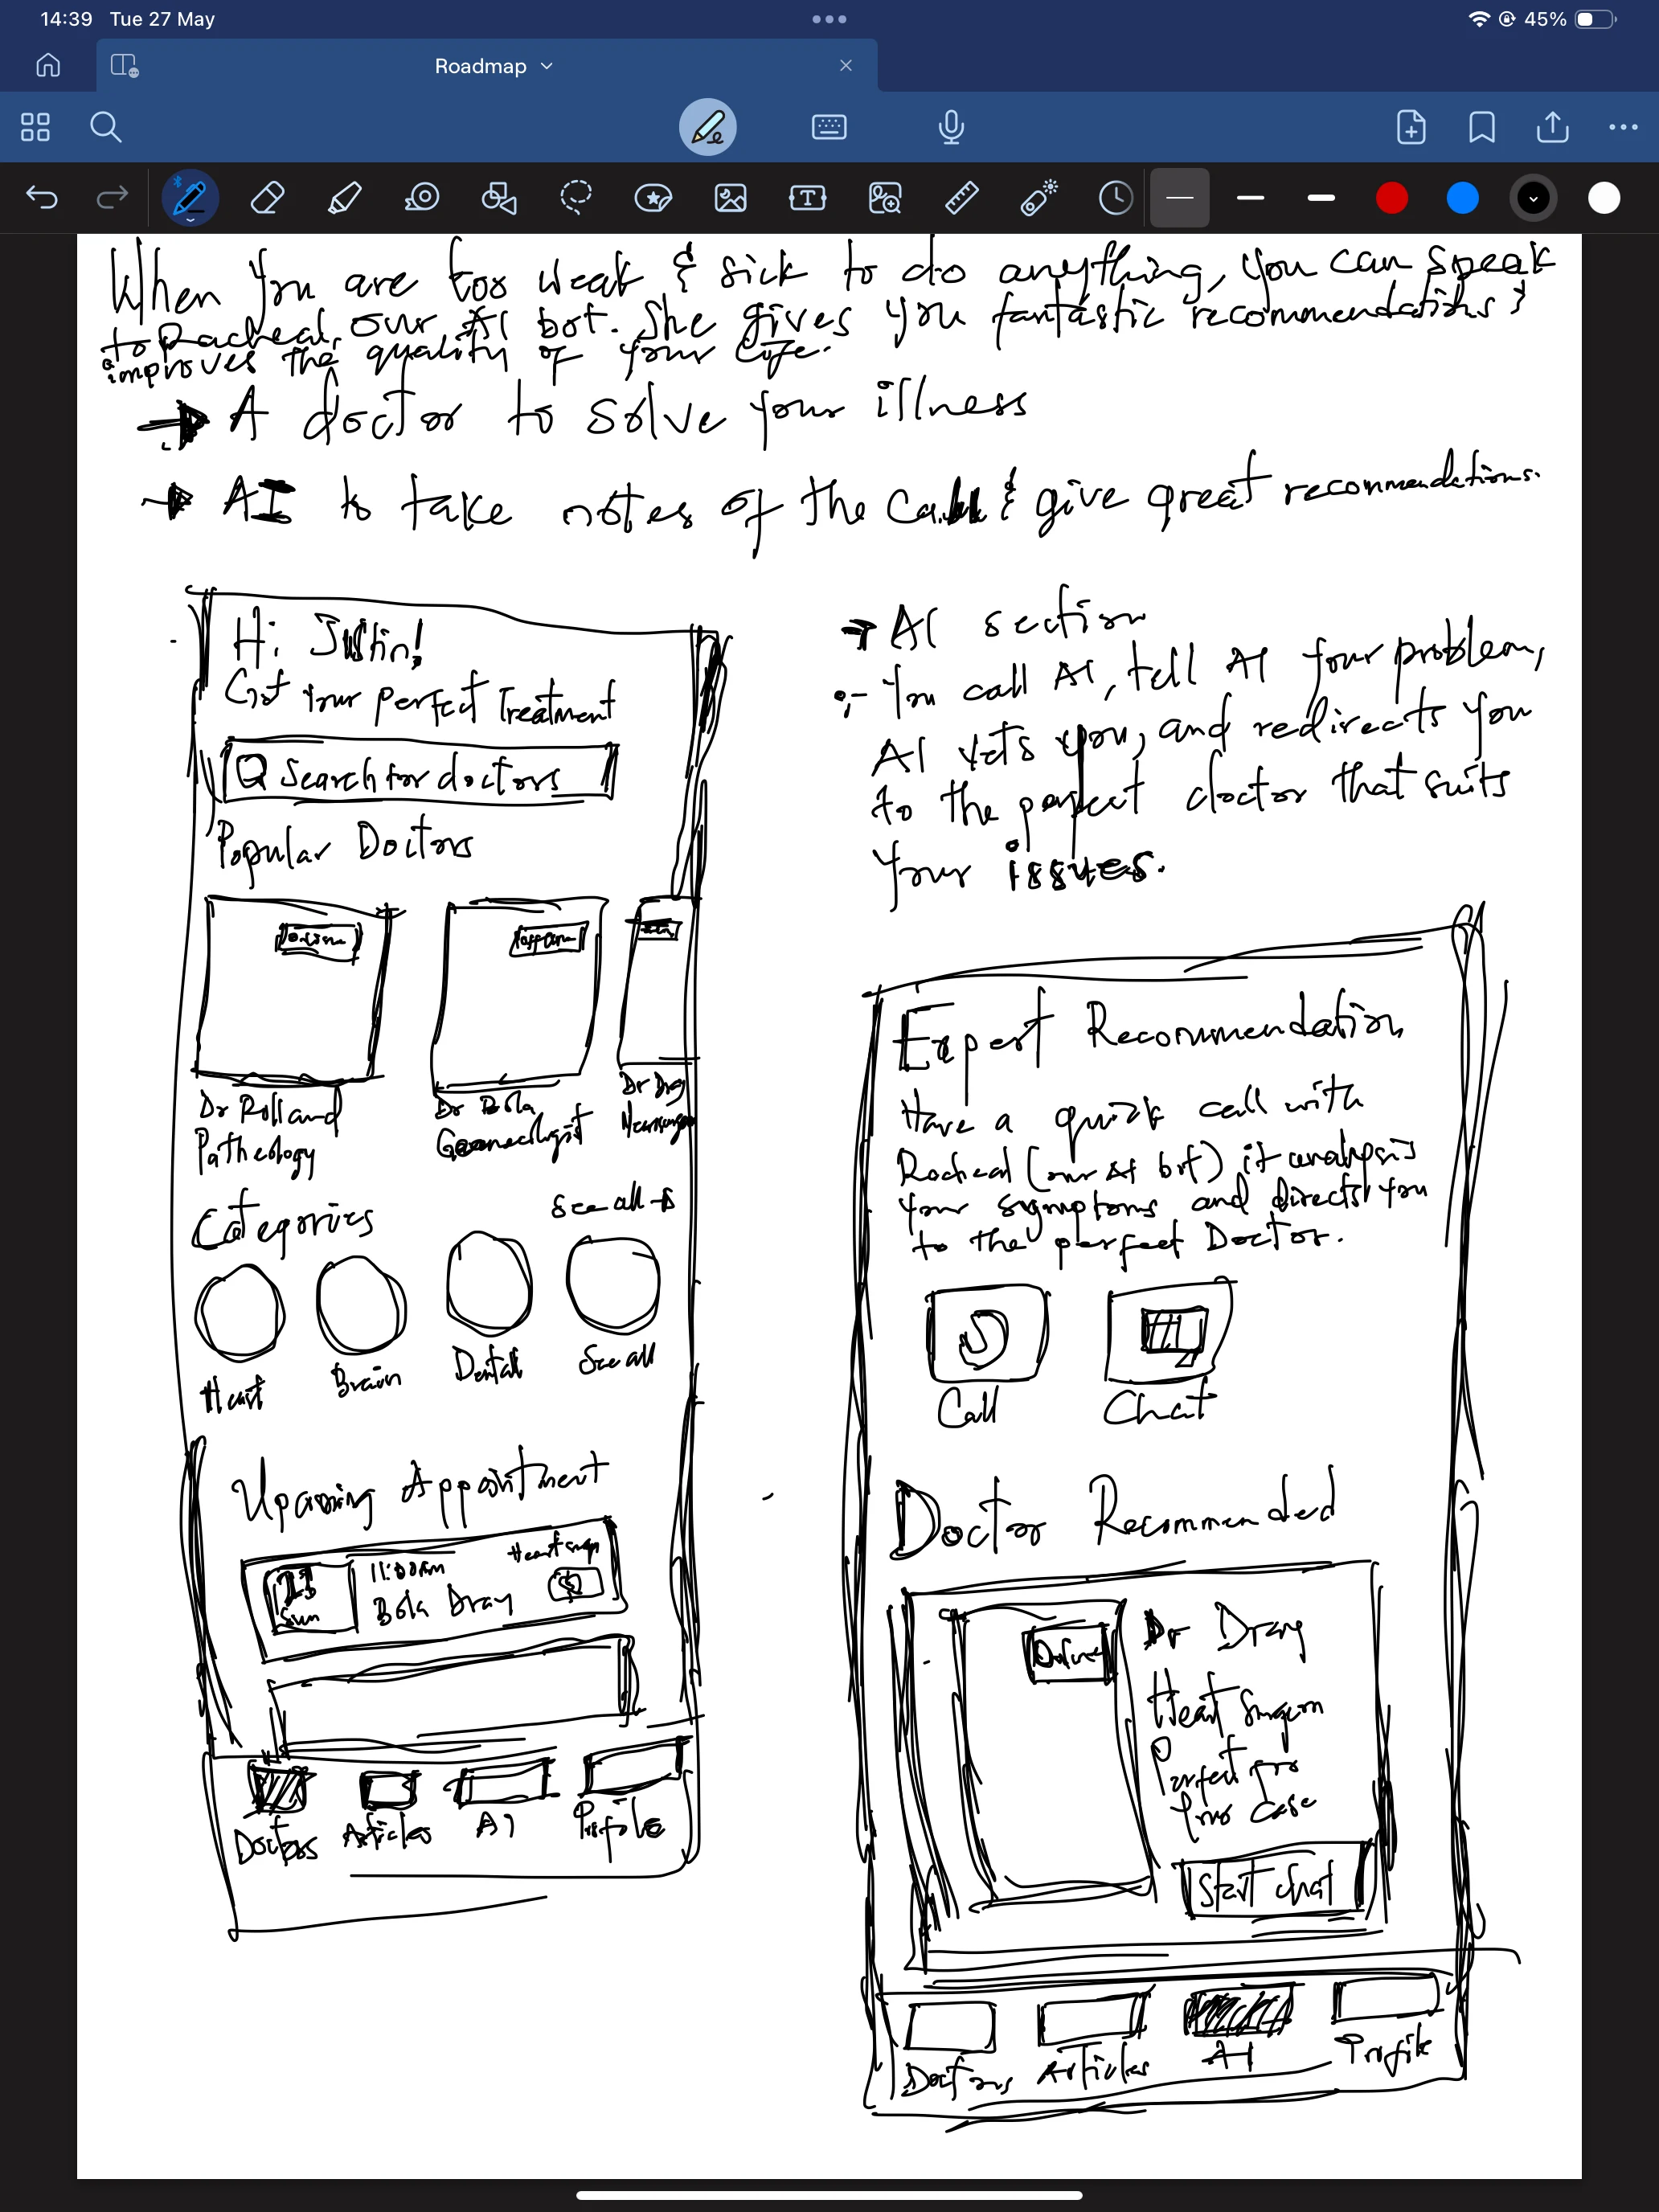 14:39 Tue 27 May
45%
Roadmap
When you are too weak & sick to do anything, you can speak
to Racheal, our AI bot. She gives you fantastic recommendations &
improves the quality of your life.
→ A doctor to solve your illness
→ AI to take notes of the call & give great recommendations.
Hi Justin!
Get Your Perfect Treatment
Search for doctors
Popular Doctors
Dr Rolland
Pathology
Dr Bola
Dr Dray
Categories
See all →
Heart
Brain
Dental
See all
Upcoming Appointment
Sun
11:00am
Bola Dray
Doctors
Articles
AI
Profile
→ AI section
:- You call AI, tell AI your problem,
AI vets you, and redirects you
to the perfect doctor that suits
your issues.
Expert Recommendation
Have a quick call with
Racheal (our AI bot) it analysis
your symptoms and directs you
to the perfect Doctor.
Call
Chat
Doctor Recommended
Dr Dray
Heart Surgeon
Perfect for
your case
Start chat
Doctors
Articles
AI
Profile